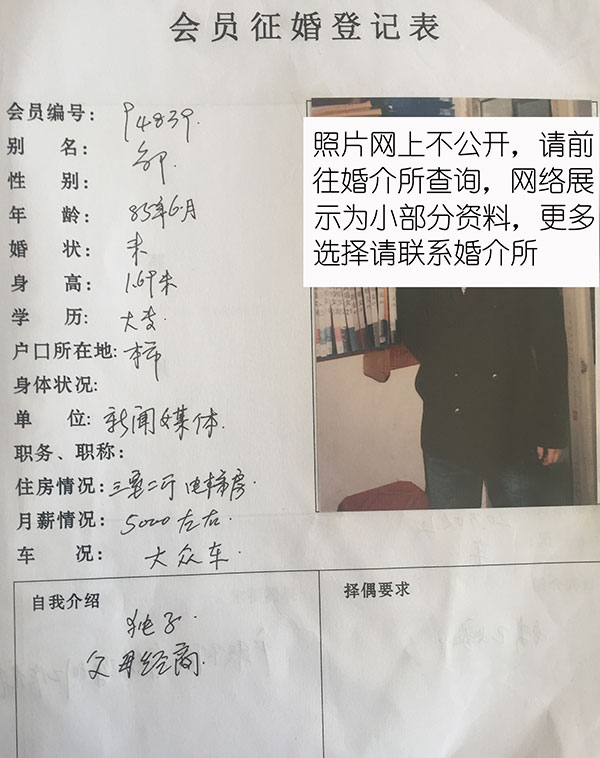 会员征婚登记表
会员编号: 94839.
别 名:
性 别:
年 龄: 85年6月
婚 状: 未
身 高: 1.69米
学 历: 大专.
户口所在地: 本市
身体状况:
单 位: 新闻媒体.
职务、职称:
住房情况: 三室二厅 电梯房.
月薪情况: 5000左右.
车 况: 大众车.
照片网上不公开，请前
往婚介所查询，网络展
示为小部分资料，更多
选择请联系婚介所
自我介绍
独子.
父母经商.
择偶要求